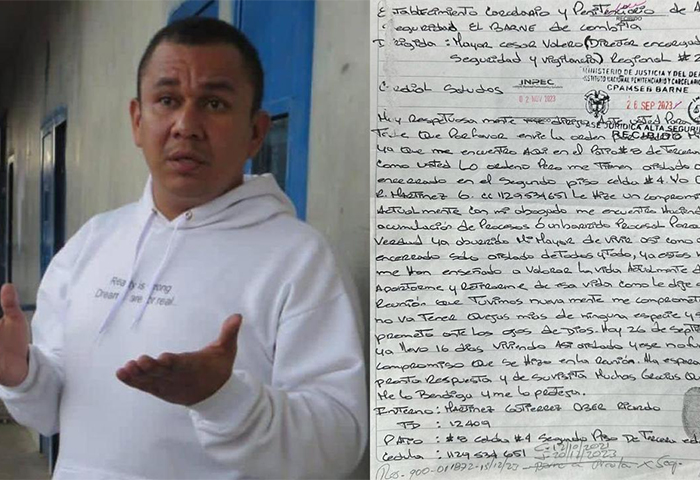 Reality is wrong
Dreams are for real.
Establecimiento Carcelario y Penitenciario de A
Seguridad EL BARNE de Combita
Dirigida : Mayor Cesar Valero (Director encargad
Seguridad y vigilancia) Regional #2
Cordial Saludos
INPEC
02 NOV 2023
MINISTERIO DE JUSTICIA Y DEL DE
INSTITUTO NACIONAL PENITENCIARIO Y CARCELARIO
CPAMSEB BARNE
26 SEP. 2023
JURIDICA ALTA SEGUR
RECIBIDO
Muy Respetuosa mente me dirijo Ante usted Para
que Por favor envie la orden
Ya Que me encuentro Aqui en el Patio #8 de Tercera
como usted Lo ordeno Pero me Tienen aislado
encerrado en el Segundo piso celda #4. Yo O
R. MARTINEZ G. CC 1129.534 651 Le Hize un compromi
Actualmente con mi abogado me encuentro
acumulacion de Procesos o un barrido Procesal Para
Verdad ya aburrido Mi Mayor de Vivir asi como
encerrado solo aislado de Todos y Todo, ya estos
me Han enseñado a Valorar la vida Actualmente
Apartarme y Retirarme de esa vida como Le dije
Reunión que Tuvimos nueva mente me comprome
no va Tener Quejas mias de ninguna especie y s
prometo ante los ojos de Dios. Hoy 26 de Sept
ya llevo 16 dias Viviendo Asi aislado y ese no fu
compromiso que se Hizo en la Reunión. Me espera
pronta Respuesta y de su visita Muchas Gracias Que
Me lo Bendiga y me lo proteja.
Interno : MARTINEZ GUTIERREZ OBER RICARDO
TD : 12409
PATIO : #8 celda #4 Segundo Piso De Tercera
Cedula : 1129 534 651
C-12/10/2021
20/11/2023
Res-900-011872-15/12/23